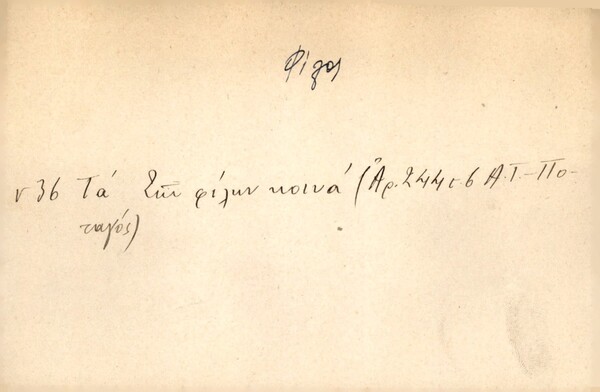 Φίλος
ν 36 Τά τῶν φίλων κοινά (Ἀρ. 244 σ 6 Α.Τ.-Πο-
ταγός)